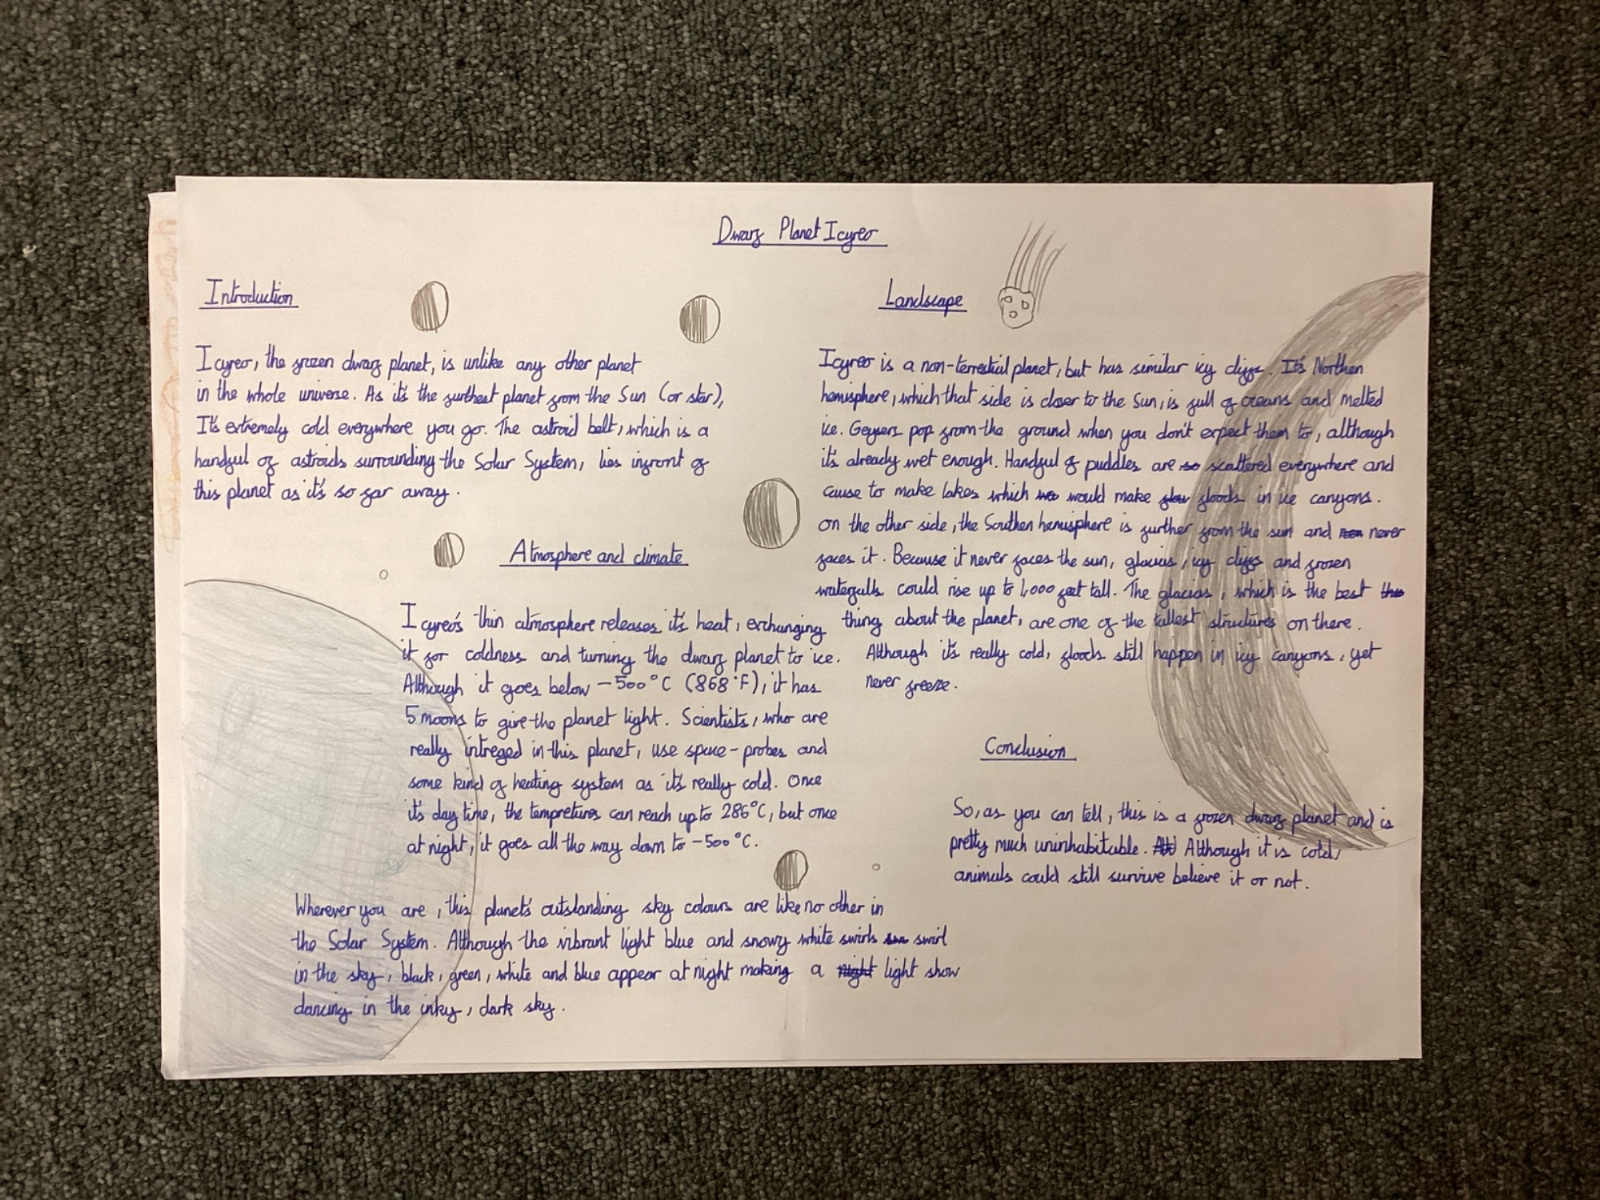 Dwarf Planet Icyreo
Introduction
Icyreo, the frozen dwarf planet, is unlike any other planet
in the whole universe. As it's the furthest planet from the Sun (or star),
It's extremely cold everywhere you go. The astroid belt, which is a
handful of astroids surrounding the Solar System, lies infront of
this planet as it's so far away.
Atmosphere and climate
Icyreo's thin atmosphere releases it's heat, exchanging
it for coldness and turning the dwarf planet to ice.
Although it goes below -500°C (868°F), it has
5 moons to give the planet light. Scientists, who are
really intreged in this planet, use space-probes and
some kind of heating system as it's really cold. Once
it's day time, the tempretures can reach up to 286°C, but once
at night, it goes all the way down to -500°C.
Wherever you are, this planet's outstanding sky colours are like no other in
the Solar System. Although the vibrant light blue and snowy white swirls swirl
in the sky, black, green, white and blue appear at night making a night light show
dancing in the inky, dark sky.
Landscape
Icyreo is a non-terrestial planet, but has similar icy cliffs. It's Northen
hemisphere, which that side is closer to the Sun, is full of oceans and melted
ice. Geysers pop from the ground when you don't expect them to, although
it's already wet enough. Handful of puddles are so scattered everywhere and
cause to make lakes which would make floods in ice canyons.
on the other side, the Southen hemisphere is further from the sun and never
faces it. Because it never faces the sun, glacias, icy cliffs and frozen
waterfalls could rise up to 1,000 feet tall. The glacias, which is the best
thing about the planet, are one of the tallest structures on there.
Although it's really cold, floods still happen in icy canyons, yet
never freeze.
Conclusion
So, as you can tell, this is a frozen dwarf planet and is
pretty much uninhabitable. Although it is cold,
animals could still survive believe it or not.